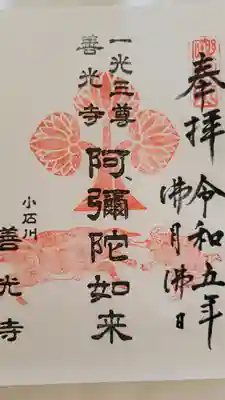 奉拝
令和五年
佛月佛日
一光三尊
善光寺
阿彌陀如来
小石川
善光寺